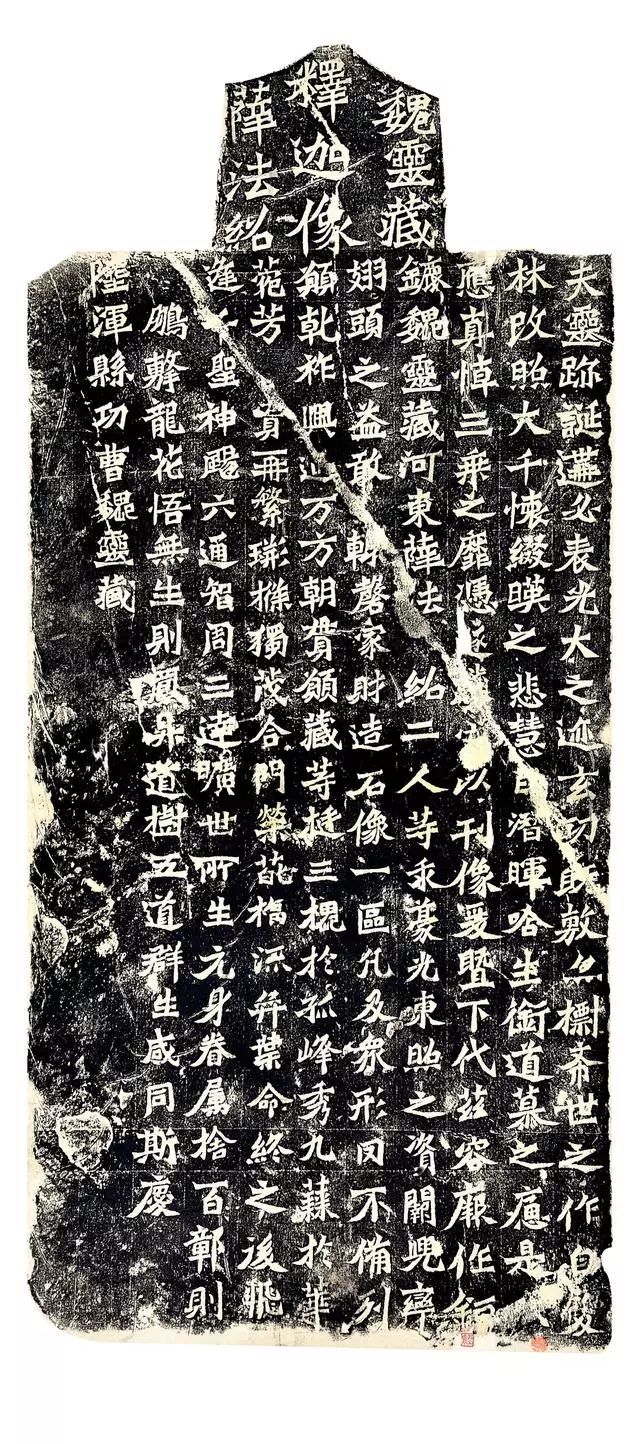 魏靈藏
釋迦像
薛法紹
夫靈跡誕遘必表光大之迹玄功既敷亦標希世之作自雙
林改昭大千懷綴暎之悲慧日潛暉唅生銜道慕之痛是
應真悼三乘之靡憑遂騰空以刊像爰暨下代茲容厥作鉅
鏕魏靈藏河東薛法紹二人等求豪光東照之資闕兜率
翅頭之益敢輒磬家財造石像一區凡及衆形罔不備列
願乾祚興延万方朝貫願藏等挺三槐於孤峰秀九蕀於華
菀芳實再繁荊條獨茂合門榮葩福流弈葉命終之後飛
逢千聖神颺六通智周三達曠世所生元身眷屬捨百鄣則
鵬擊龍花悟無生則鳳昇道樹五道群生咸同斯慶
陸渾縣功曹魏靈藏